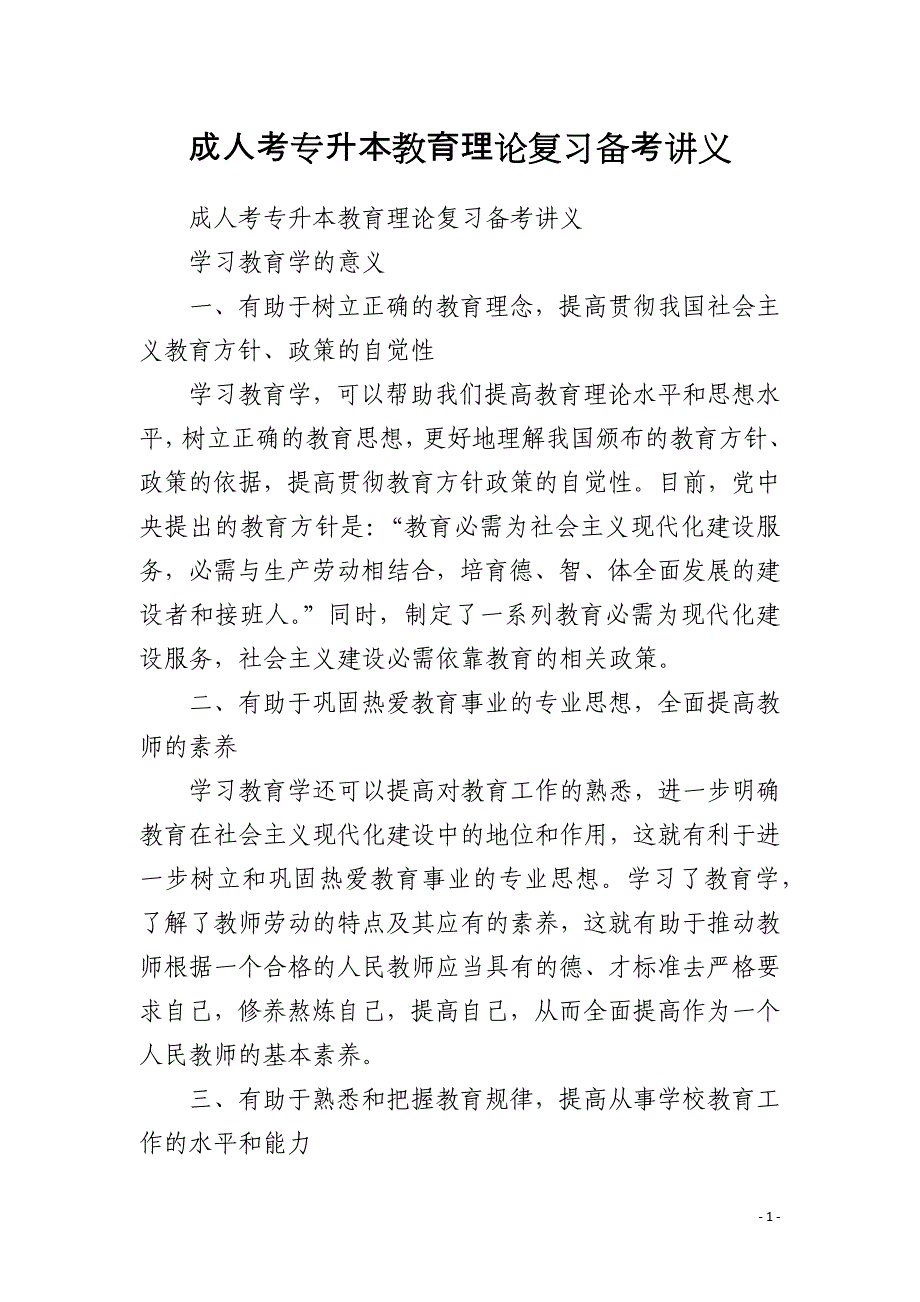 成人考专升本教育理论复习备考讲义
成人考专升本教育理论复习备考讲义
学习教育学的意义
一、有助于树立正确的教育理念，提高贯彻我国社会主
义教育方针、政策的自觉性
学习教育学，可以帮助我们提高教育理论水平和思想水
平，树立正确的教育思想，更好地理解我国颁布的教育方针、
政策的依据，提高贯彻教育方针政策的自觉性。目前，党中
央提出的教育方针是：“教育必需为社会主义现代化建设服
务，必需与生产劳动相结合，培育德、智、体全面发展的建
设者和接班人。”同时，制定了一系列教育必需为现代化建
设服务，社会主义建设必需依靠教育的相关政策。
二、有助于巩固热爱教育事业的专业思想，全面提高教
师的素养
学习教育学还可以提高对教育工作的熟悉，进一步明确
教育在社会主义现代化建设中的地位和作用，这就有利于进
一步树立和巩固热爱教育事业的专业思想。学习了教育学，
了解了教师劳动的特点及其应有的素养，这就有助于推动教
师根据一个合格的人民教师应当具有的德、才标准去严格要
求自己，修养熬炼自己，提高自己，从而全面提高作为一个
人民教师的基本素养。
三、有助于熟悉和把握教育规律，提高从事学校教育工
作的水平和能力
- 1 -